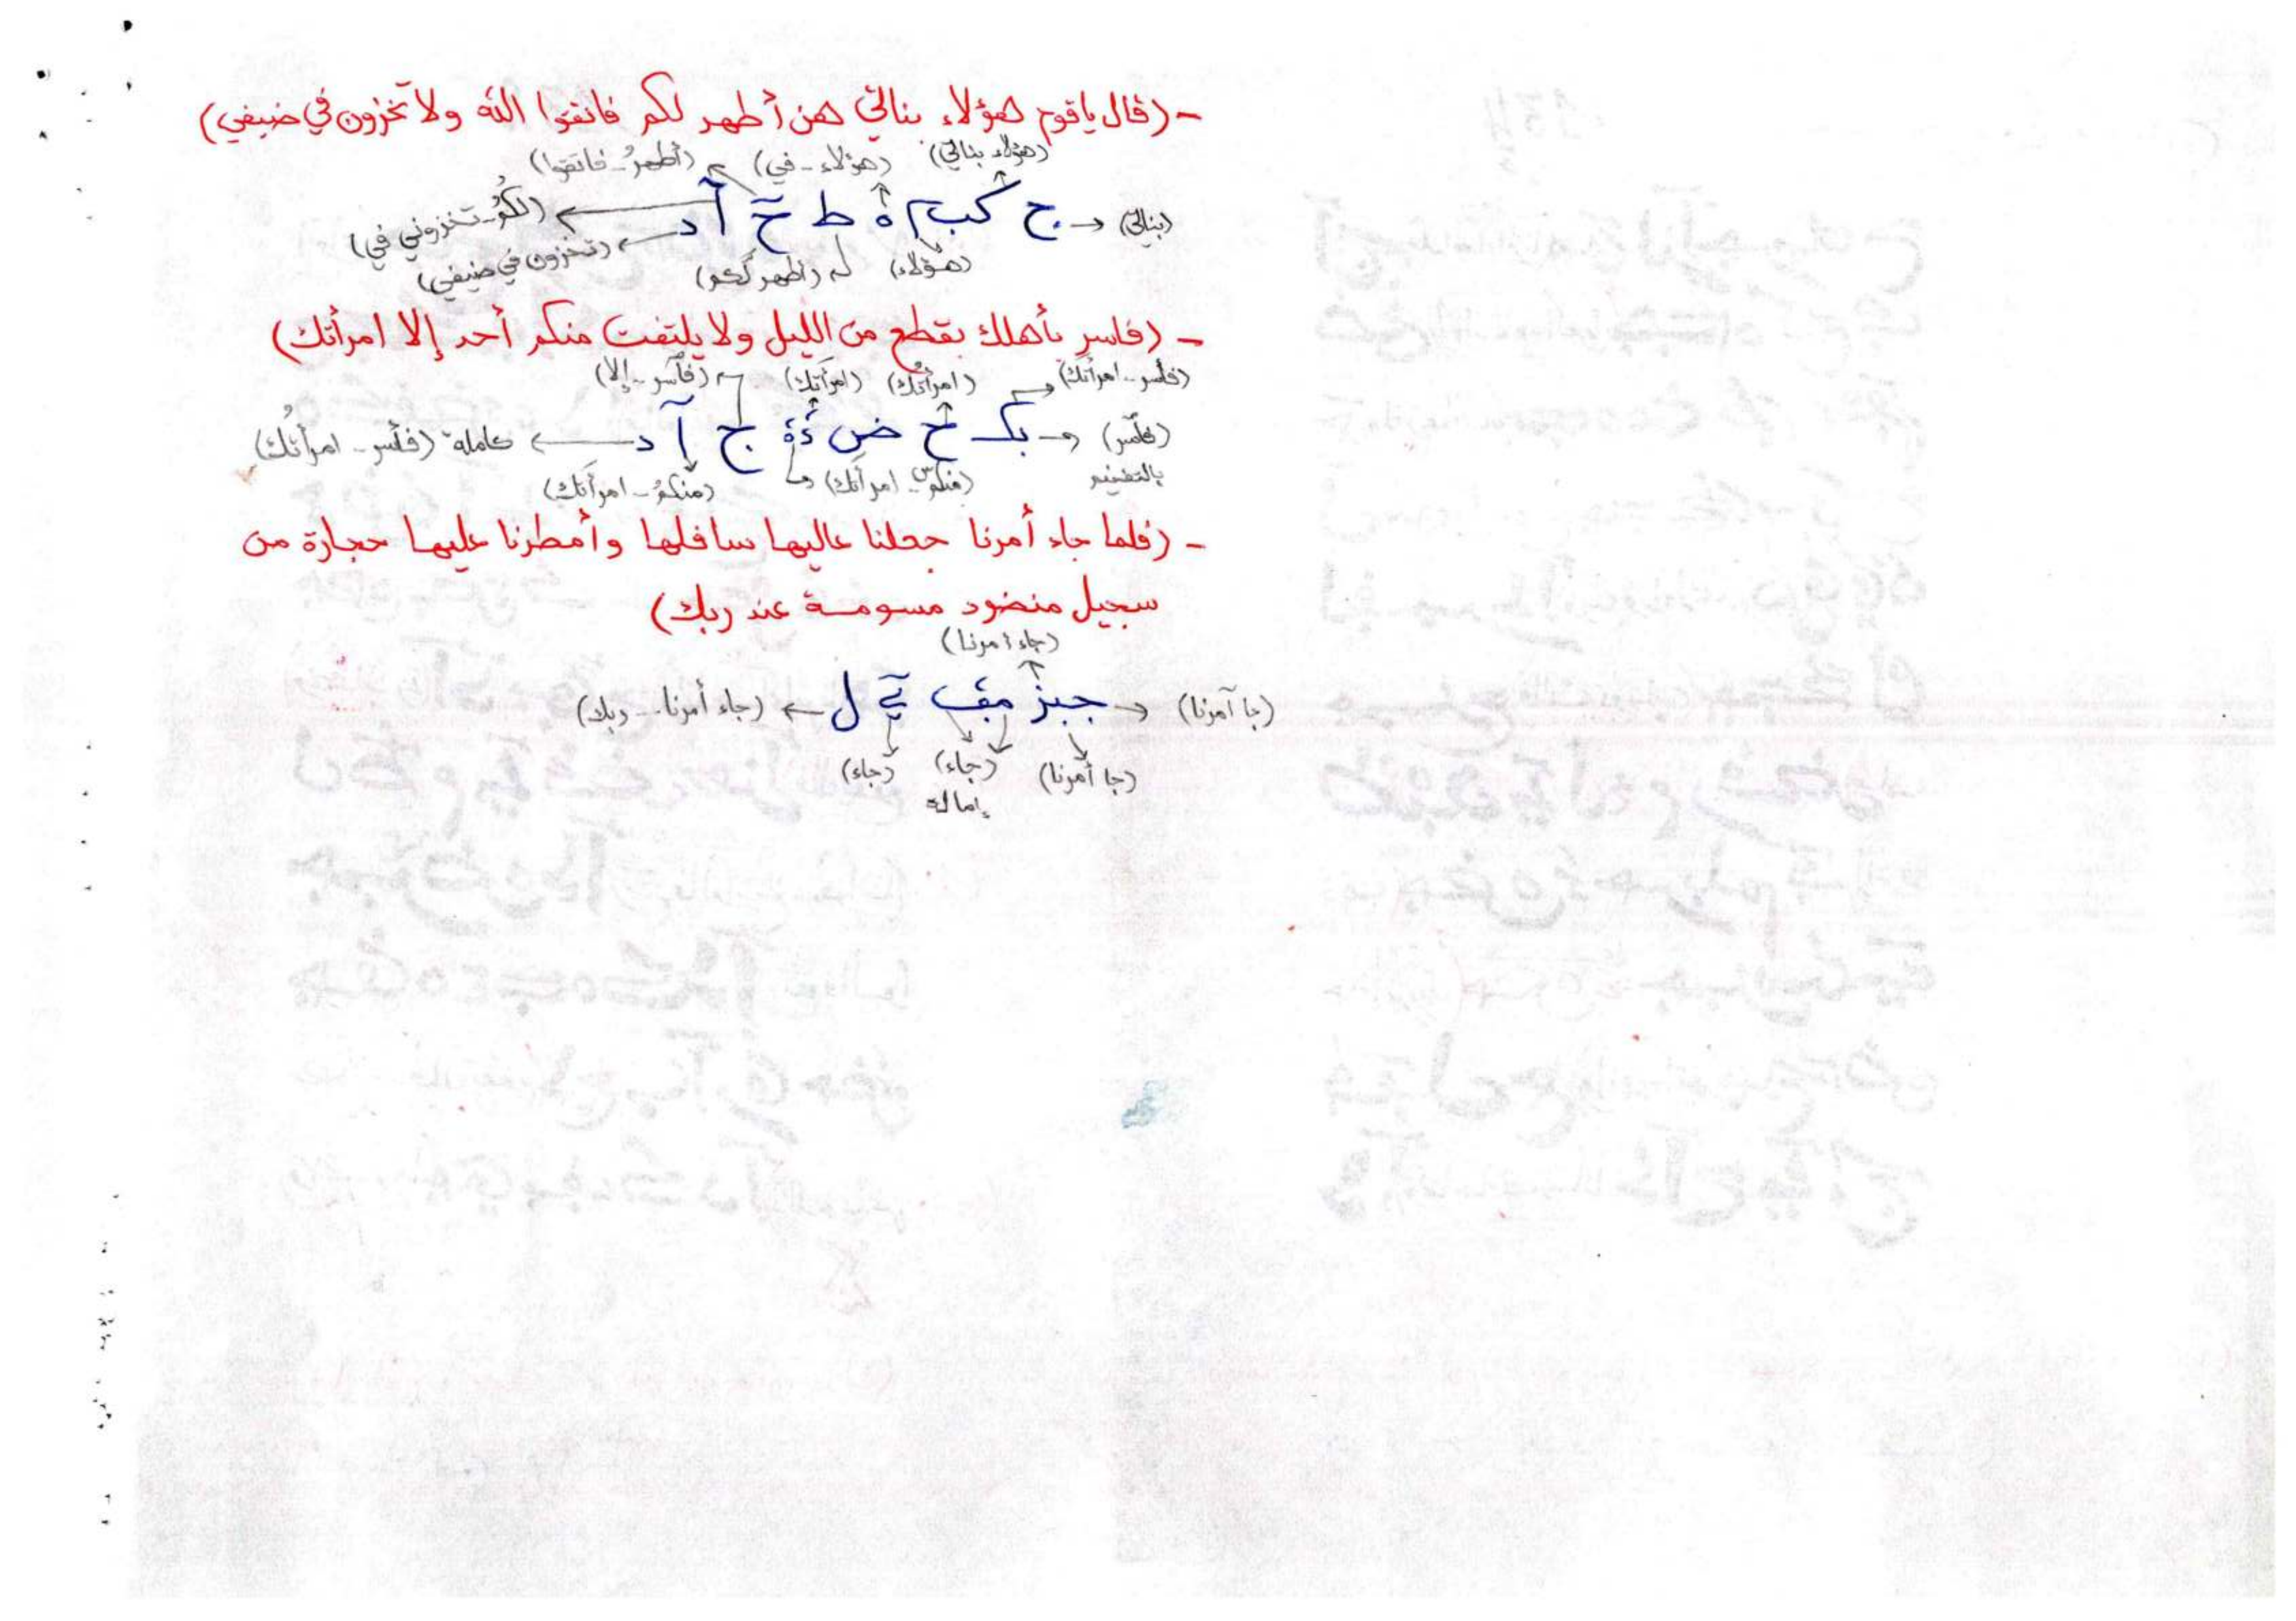 - (قال ياقوم هؤلاء بناتي هن أطهر لكم فاتقوا الله ولا تخزون في ضيفي)
(هؤلاء بناتي) (هؤلاء - في) (أطهرُ - فاتقوا)
(بناتي) ج كب م ة ط حۤ آ د (لكمُ - تخزوني في)
(هؤلاء) (أطهر لكم) (تخزون في ضيفي)
- (فاسرِ بأهلك بقطع من الليل ولا يلتفت منكم أحد إلا امرأتك)
(فأسر - امرأتك) (امرأتُك) (امرأتك) (فأسر - إلا)
(فأسر) بك ح ض ج آ د كاملة (فأسر - امرأتك)
بالتفخيم (منكم - امرأتك) (منكمُ - امرأتك)
- (فلما جاء أمرنا جعلنا عاليها سافلها وأمطرنا عليها حجارة من
سجيل منضود مسومة عند ربك)
(جاء أمرنا)
(جا آمرنا) جبز مف ل (جاء أمرنا... ربك)
(جا أمرنا) (جاء) (جاء)
إمالة